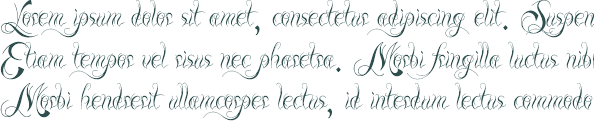 Lorem ipsum dolor sit amet, consectetur adipiscing elit. Suspen
Etiam tempor vel risus nec pharetra. Morbi fringilla luctus nib
Morbi hendrerit ullamcorper lectus, id interdum lectus commodo